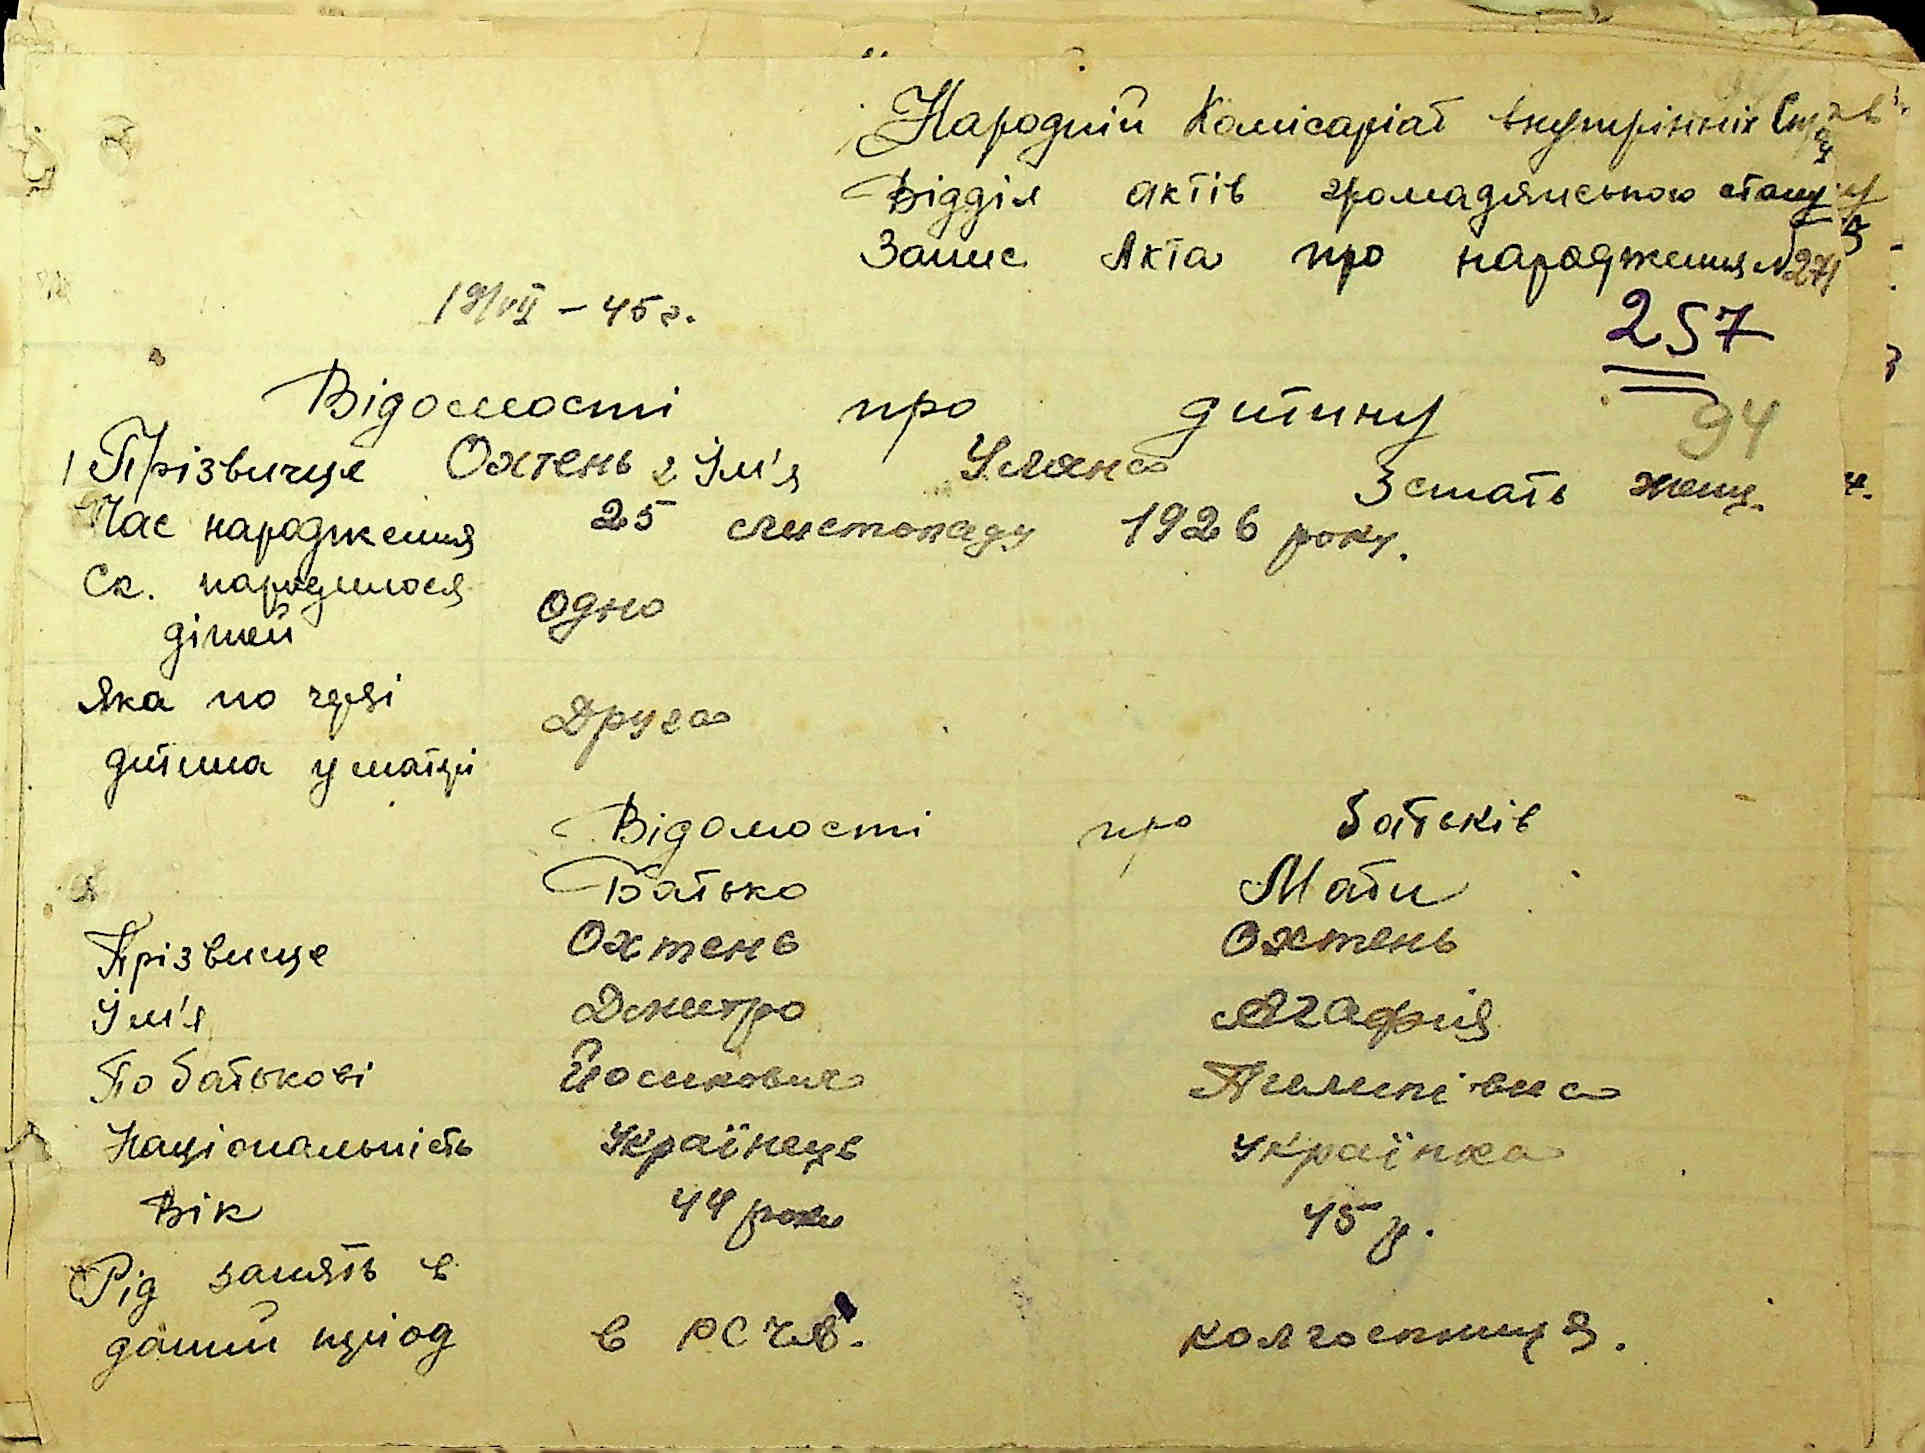 Народній Комісаріат внутрішніх Справ
Відділ актів громадянського стану
Запис Акта про народження № 271
19/VII – 45 г.
257
Відомості про дитину
94
1 Прізвище Охтень 2 Ім'я Уляна 3 стать жінц.
Час народження 25 листопаду 1926 року.
Ск. народилося одно
дітей
Яка по черзі Друга
дитина у матері
Відомості про батьків
Батько Мати
Прізвище Охтень Охтень
Ім'я Дмитро Агафія
По батькові Йосипович Пилипівна
Національність Українець Українка
Вік 44 роки 45 р.
Рід занять в
даний період в РСЧА. колгоспниця.